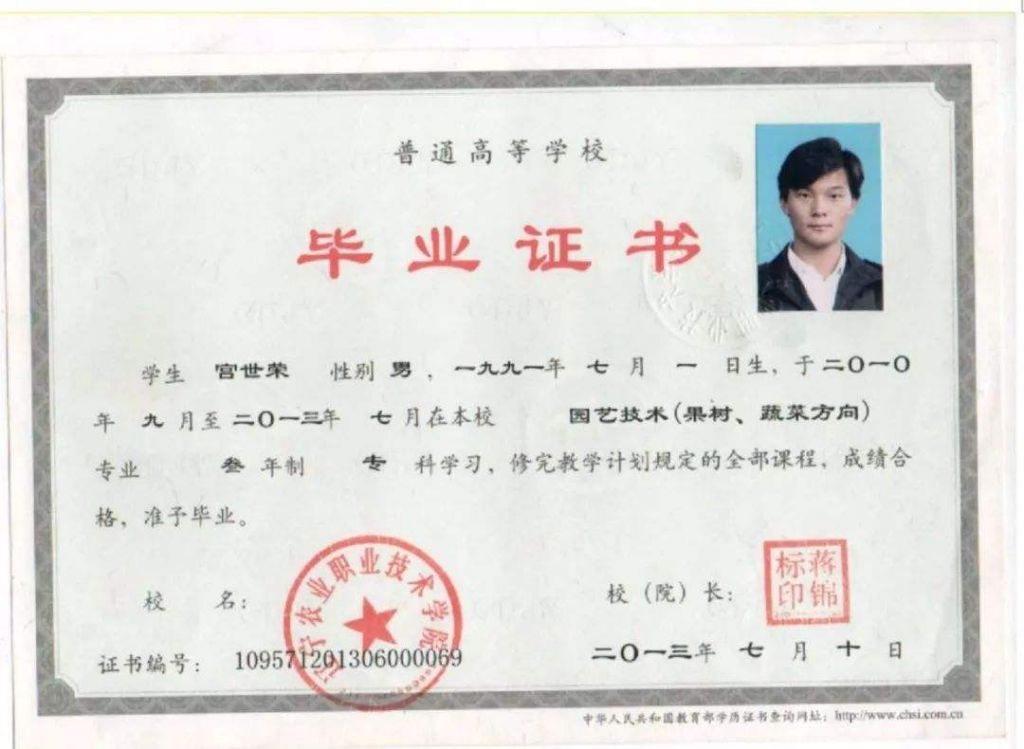 普通高等学校
毕业证书
学生 宫世荣 性别 男，一九九一年 七 月 一 日生，于二〇一〇
年 九 月至 二〇一三年 七 月在本校 园艺技术(果树、蔬菜方向)
专业 叁 年制 专 科学习，修完教学计划规定的全部课程，成绩合
格，准予毕业。
校 名：
辽宁农业职业技术学院
校（院）长：
蒋锦标印
证书编号： 109571201306000069
二〇一三年 七 月 十 日
中华人民共和国教育部学历证书查询网址：http://www.chsi.com.cn